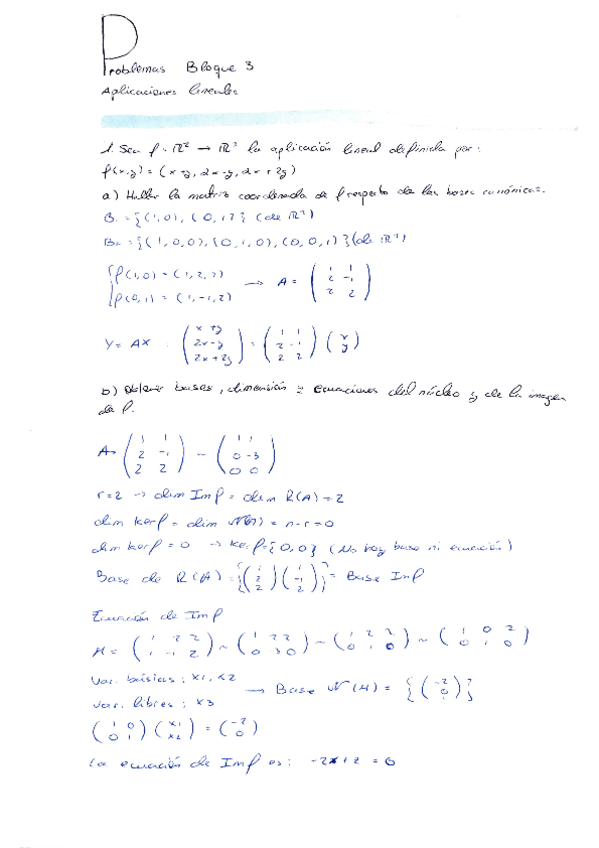 Problemas Bloque 3
Aplicaciones lineales
1. Sea f: ℝ² → ℝ³ la aplicación lineal definida por:
f(x,y) = (x+y, 2x-y, 2x+2y)
a) Hallar la matriz coordenada de f respecto de las bases canónicas.
B₁ = {(1,0), (0,1)} (de ℝ²)
B₂ = {(1,0,0), (0,1,0), (0,0,1)} (de ℝ³)
{ f(1,0) = (1,2,2)
f(0,1) = (1,-1,2) → A = ( 1 1 ; 2 -1 ; 2 2 )
Y = AX : ( x+y ; 2x-y ; 2x+2y ) = ( 1 1 ; 2 -1 ; 2 2 ) ( x ; y )
b) Obtener bases, dimensión y ecuaciones del núcleo y de la imagen
de f.
A = ( 1 1 ; 2 -1 ; 2 2 ) ~ ( 1 1 ; 0 -3 ; 0 0 )
r=2 → dim Imf = dim R(A) = 2
dim kerf = dim N(A) = n-r = 0
dim kerf = 0 → kerf = {0,0} (No hay base ni ecuación)
Base de R(A) = { ( 1 ; 2 ; 2 ) ( 1 ; -1 ; 2 ) } = Base Imf
Ecuación de Imf
H = ( 1 2 2 ; 1 -1 2 ) ~ ( 1 2 2 ; 0 -3 0 ) ~ ( 1 2 2 ; 0 1 0 ) ~ ( 1 0 2 ; 0 1 0 )
Var. básicas: x1, x2
var. libres: x3 → Base N(H) = { ( -2 ; 0 ; 1 ) }
( 1 0 ; 0 1 ) ( x1 ; x2 ) = ( -2 ; 0 )
La ecuación de Imf es: -2x+z = 0